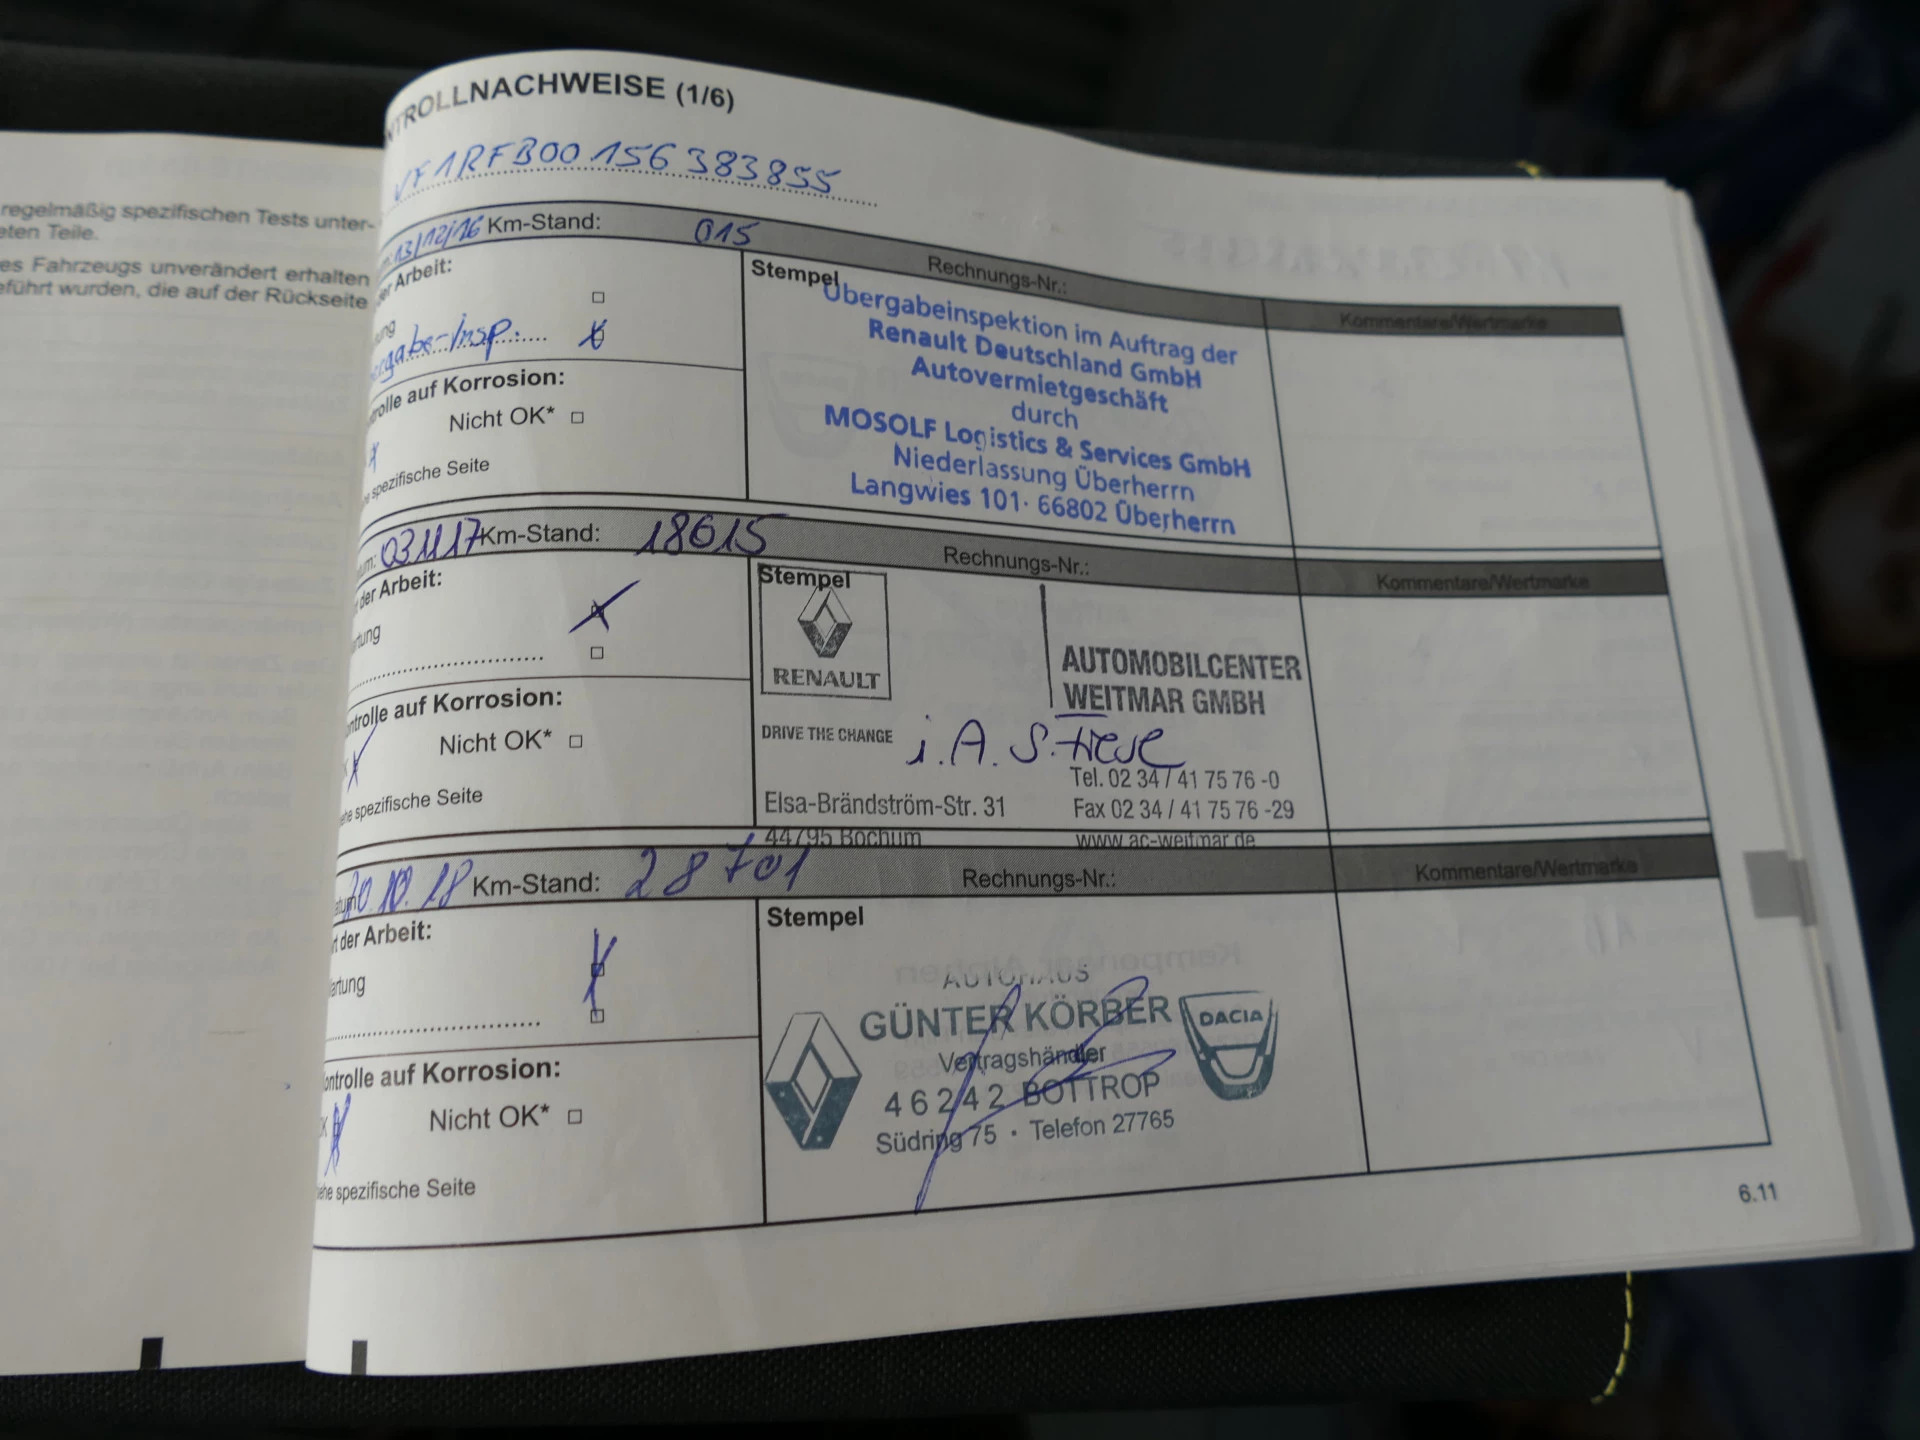 regelmäßig spezifischen Tests unter-
eten Teile.
es Fahrzeugs unverändert erhalten
eführt wurden, die auf der Rückseite
NTROLLNACHWEISE (1/6)
VF1RFB00156383855
13/12/16 Km-Stand: 015 Rechnungs-Nr.:
Kommentare/Wertmarke
er Arbeit:
Stempel
ung
ergabe-Insp.
Übergabeinspektion im Auftrag der
Renault Deutschland GmbH
Autovermietgeschäft
durch
MOSOLF Logistics & Services GmbH
Niederlassung Überherrn
Langwies 101· 66802 Überherrn
trolle auf Korrosion:
Nicht OK*
e spezifische Seite
tum: 031117 Km-Stand: 18615 Rechnungs-Nr.:
Kommentare/Wertmarke
der Arbeit:
Stempel
rtung
RENAULT
DRIVE THE CHANGE
AUTOMOBILCENTER
WEITMAR GMBH
i.A. S.
Tel. 02 34 / 41 75 76 -0
Elsa-Brändström-Str. 31
Fax 02 34 / 41 75 76 -29
44795 Bochum
www.ac-weitmar.de
ntrolle auf Korrosion:
K Nicht OK*
ehe spezifische Seite
atum 10.18 Km-Stand: 28701 Rechnungs-Nr.:
Kommentare/Wertmarke
t der Arbeit:
Stempel
artung
AUTOHAUS
GÜNTER KÖRBER
DACIA
Vertragshändler
46242 BOTTROP
Südring 75 · Telefon 27765
ontrolle auf Korrosion:
OK Nicht OK*
iehe spezifische Seite
6.11